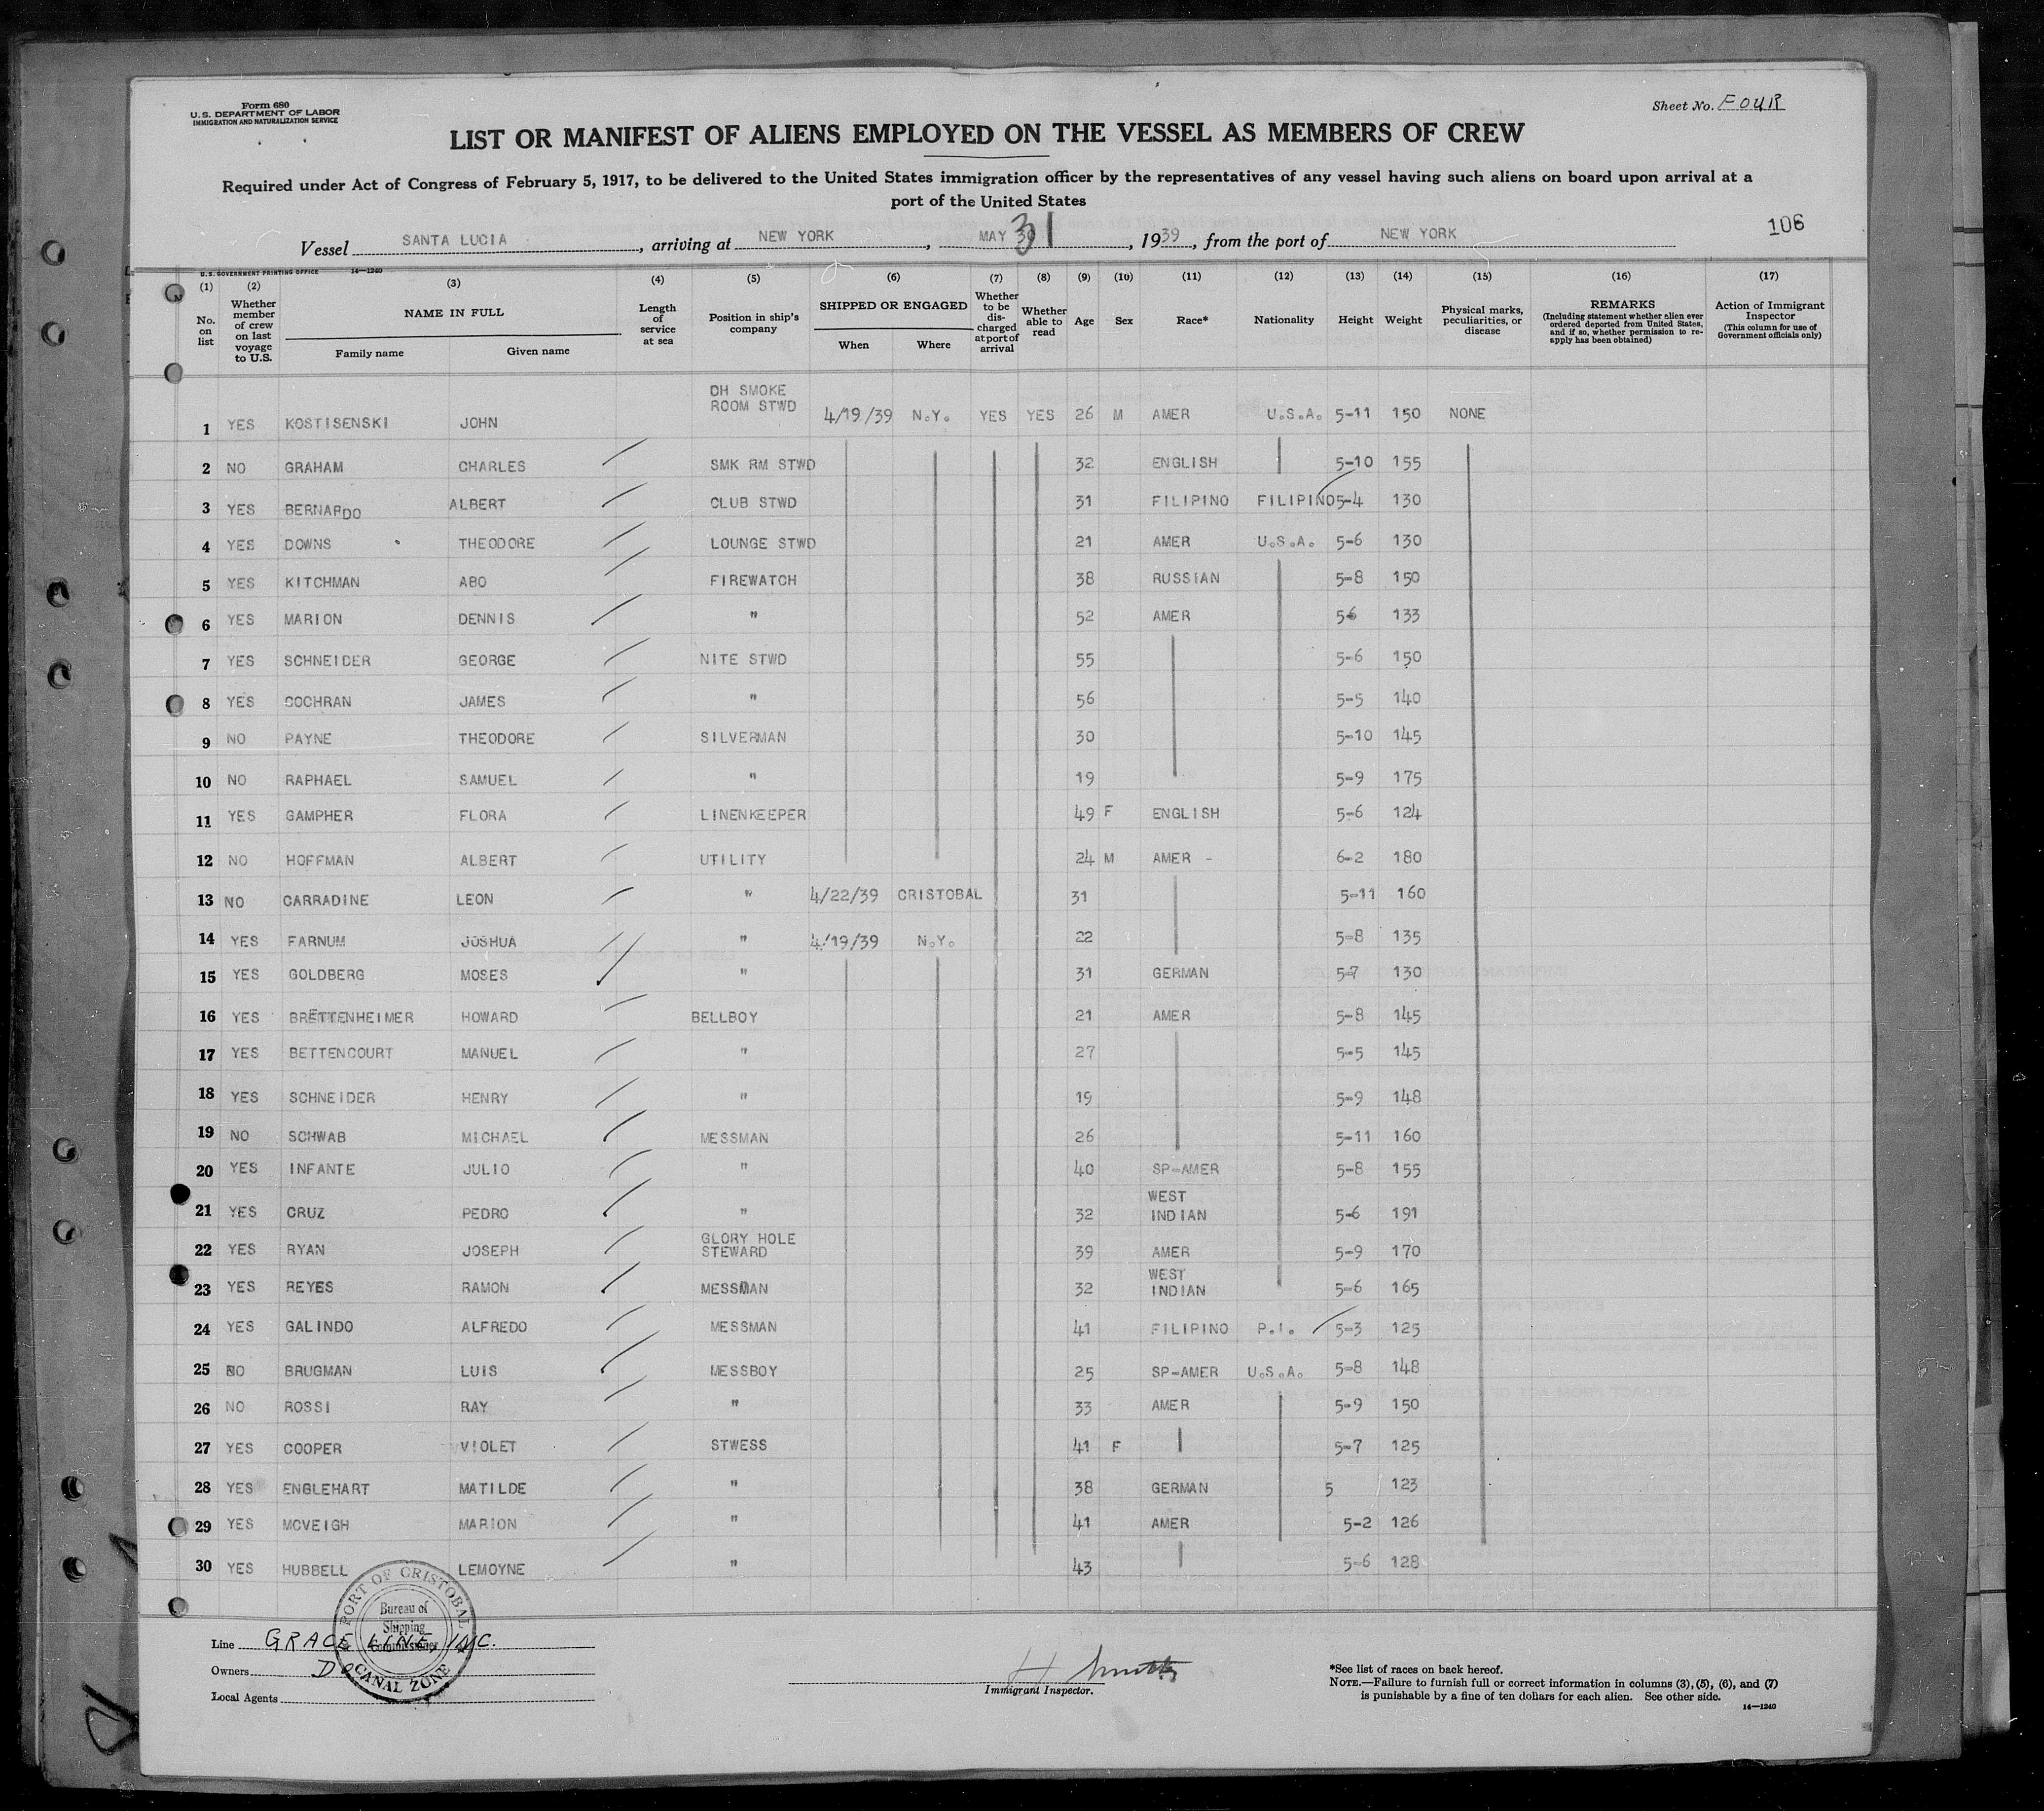 Form 680
U.S. DEPARTMENT OF LABOR
IMMIGRATION AND NATURALIZATION SERVICE
Sheet No. FOUR
LIST OR MANIFEST OF ALIENS EMPLOYED ON THE VESSEL AS MEMBERS OF CREW
Required under Act of Congress of February 5, 1917, to be delivered to the United States immigration officer by the representatives of any vessel having such aliens on board upon arrival at a
port of the United States
106
Vessel SANTA LUCIA, arriving at NEW YORK, MAY 31, 1939, from the port of NEW YORK
U.S. GOVERNMENT PRINTING OFFICE 14—1240
(1) (2) (3) (4) (5) (6) (7) (8) (9) (10) (11) (12) (13) (14) (15) (16) (17)
No. on list
Whether member of crew on last voyage to U.S.
NAME IN FULL
Family name Given name
Length of service at sea
Position in ship's company
SHIPPED OR ENGAGED
When Where
Whether to be discharged at port of arrival
Whether able to read
Age Sex Race* Nationality Height Weight
Physical marks, peculiarities, or disease
REMARKS
(Including statement whether alien ever ordered deported from United States, and if so, whether permission to reapply has been obtained)
Action of Immigrant Inspector
(This column for use of Government officials only)
1 YES KOSTISENSKI JOHN CH SMOKE ROOM STWD 4/19/39 N.Y. YES YES 26 M AMER U.S.A. 5-11 150 NONE
2 NO GRAHAM CHARLES SMK RM STWD 32 ENGLISH 5-10 155
3 YES BERNARDO ALBERT CLUB STWD 31 FILIPINO FILIPINO 5-4 130
4 YES DOWNS THEODORE LOUNGE STWD 21 AMER U.S.A. 5-6 130
5 YES KITCHMAN ABO FIREWATCH 38 RUSSIAN 5-8 150
6 YES MARION DENNIS " 52 AMER 5-6 133
7 YES SCHNEIDER GEORGE NITE STWD 55 5-6 150
8 YES COCHRAN JAMES " 56 5-5 140
9 NO PAYNE THEODORE SILVERMAN 30 5-10 145
10 NO RAPHAEL SAMUEL " 19 5-9 175
11 YES GAMPHER FLORA LINENKEEPER 49 F ENGLISH 5-6 124
12 NO HOFFMAN ALBERT UTILITY 24 M AMER - 6-2 180
13 NO CARRADINE LEON " 4/22/39 CRISTOBAL 31 5-11 160
14 YES FARNUM JOSHUA " 4/19/39 N.Y. 22 5-8 135
15 YES GOLDBERG MOSES " 31 GERMAN 5-7 130
16 YES BRETTENHEIMER HOWARD BELLBOY 21 AMER 5-8 145
17 YES BETTENCOURT MANUEL " 27 5-5 145
18 YES SCHNEIDER HENRY " 19 5-9 148
19 NO SCHWAB MICHAEL MESSMAN 26 5-11 160
20 YES INFANTE JULIO " 40 SP-AMER 5-8 155
21 YES CRUZ PEDRO " 32 WEST INDIAN 5-6 191
22 YES RYAN JOSEPH GLORY HOLE STEWARD 39 AMER 5-9 170
23 YES REYES RAMON MESSMAN 32 WEST INDIAN 5-6 165
24 YES GALINDO ALFREDO MESSMAN 41 FILIPINO P.I. 5-3 125
25 NO BRUGMAN LUIS MESSBOY 25 SP-AMER U.S.A. 5-8 148
26 NO ROSSI RAY " 33 AMER 5-9 150
27 YES COOPER VIOLET STWESS 41 F 5-7 125
28 YES ENGLEHART MATILDE " 38 GERMAN 5 123
29 YES MCVEIGH MARION " 41 AMER 5-2 126
30 YES HUBBELL LEMOYNE " 43 5-6 128
PORT OF CRISTOBAL
Bureau of
Shipping
Commissioner
CANAL ZONE
Line GRACE LINE, INC.
Owners Do
Local Agents
H Smith
Immigrant Inspector.
*See list of races on back hereof.
NOTE.—Failure to furnish full or correct information in columns (3), (5), (6), and (7)
is punishable by a fine of ten dollars for each alien. See other side.
14—1240